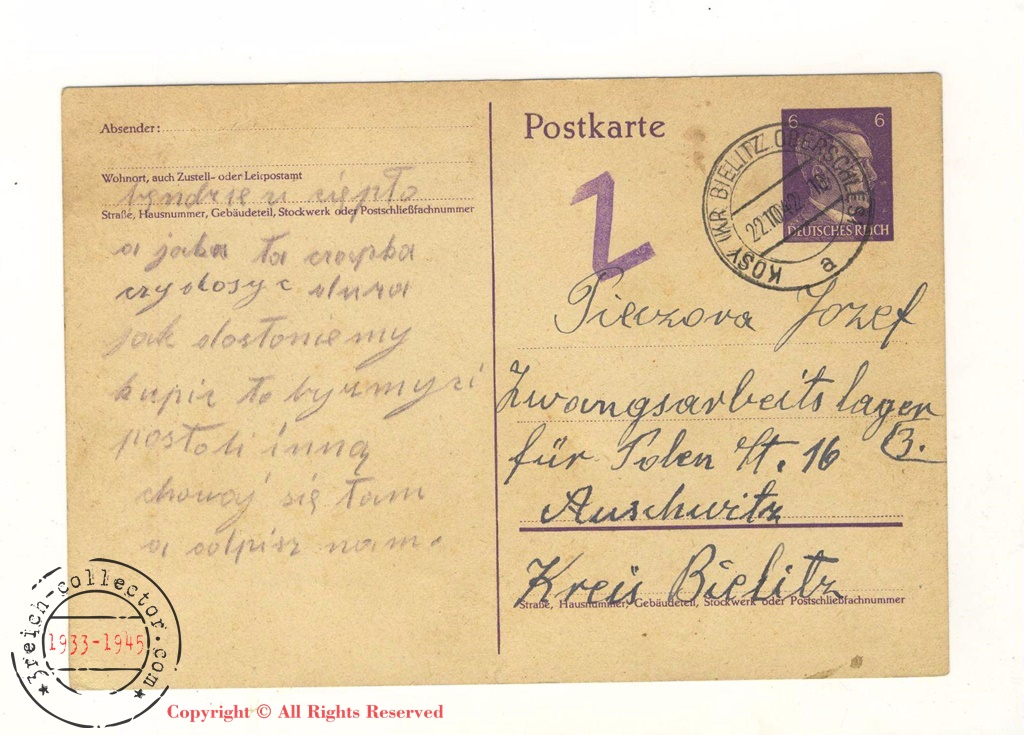 Absender:
Wohnort, auch Zustell- oder Leitpostamt
bendzie zi ciepło
Straße, Hausnummer, Gebäudeteil, Stockwerk oder Postschließfachnummer
a jaka ta czapka
czy dosyc dura
jak dostoniemy
kupic to
postoli inną
chowaj się tam
a odpisz nam.
Postkarte
Z
6 6
DEUTSCHES REICH
KOSY (KR BIELITZ, OBERSCHLES)
22.10.42. 18
a
Jozef
Zwangsarbeitslager
für Polen Nt. 16 (3.
Auschwitz
Kreis Bielitz
Straße, Hausnummer, Gebäudeteil, Stockwerk oder Postschließfachnummer
3reich-collector.com
1933-1945
Copyright © All Rights Reserved